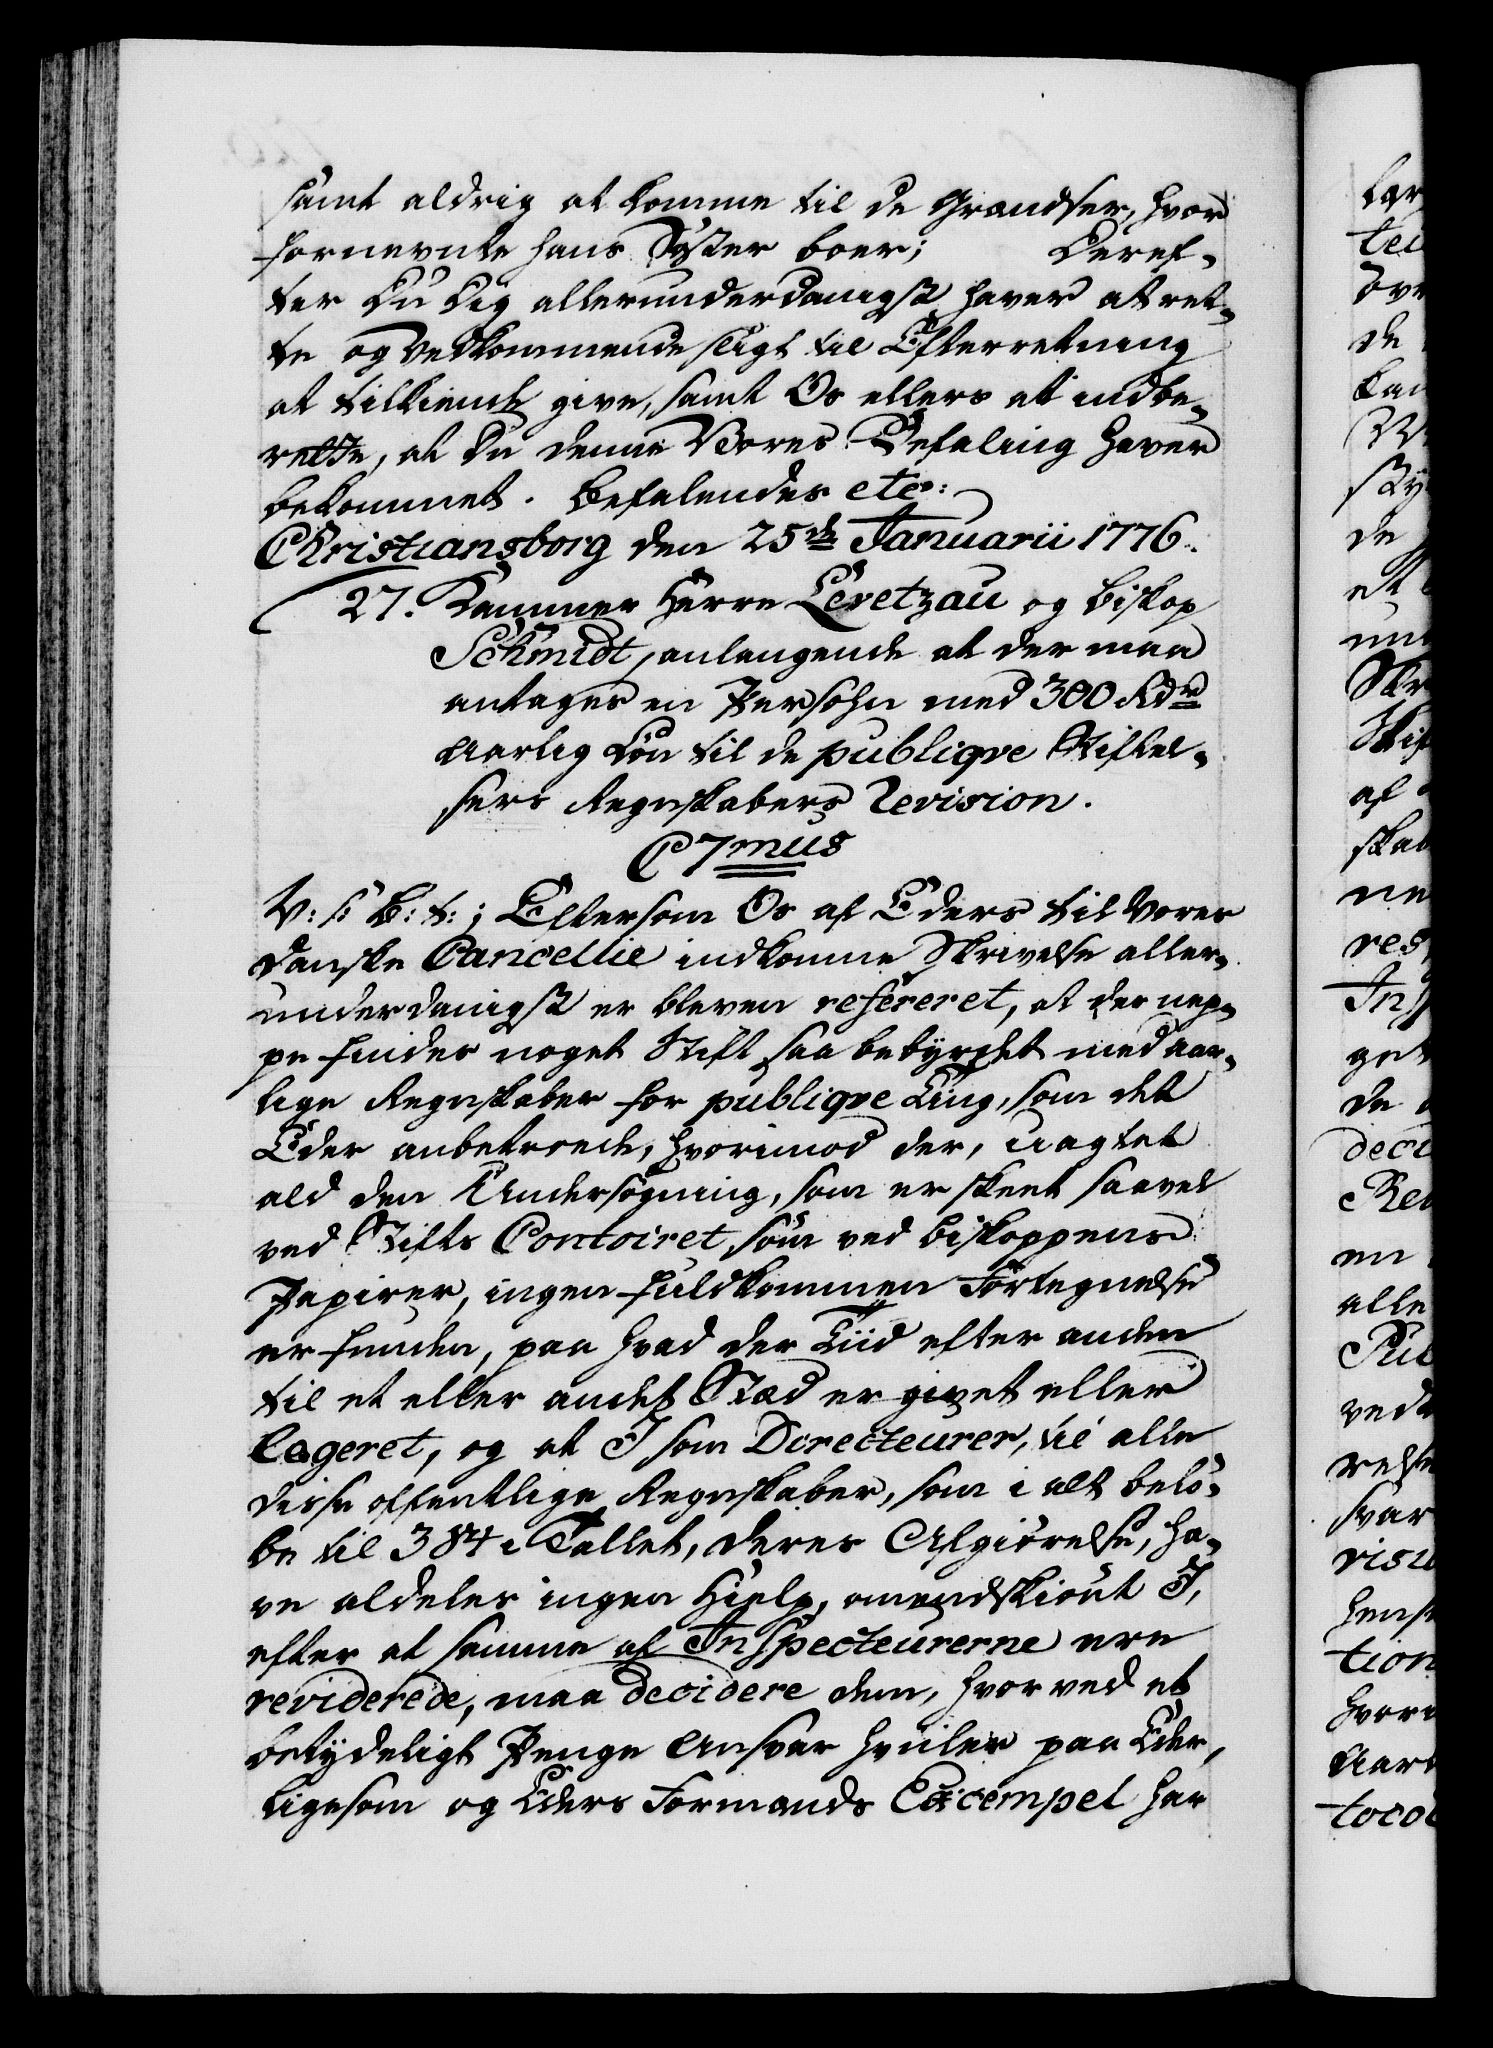 samt aldrig at komme til de Grændser, hvor
fornevnte hans Syster boer; Deref-
ter Du Dig allerunderdanigst haver at ret-
te og vedkommende sligt til Efterretning
at tilkiende give, samt Os ellers at indbe-
rette, at Du denne Vores Befaling haver
bekommet. Befalendes etc:
Christiansborg den 25de Januarii 1776.
27. Kammer Herre Levetzau og Biskop
Schmidt, anlangende at der maa
antages en Persohn med 300 Rdr
Aarlig Løn til de publiqve Stiftel-
sers Regnskabers Revision.
C 7mus
V: s: B: t:; Eftersom Os af Eders til Vores
danske Cancellie indkomne Skrivelse aller-
underdanigst er bleven refereret, at der nep-
pe findes noget Stift saa bebyrdet med aar-
lige Regnskaber for publiqve Ting, som det
Eder anbetroede, hvorimod der, uagtet
ald den Undersøgning, som er skeet saavel
ved Stifts Contoiret, som ved Biskoppens
Papirer, ingen fuldkommen Fortegnelse
er funden, paa hvad der Tiid efter anden
til et eller andet Stæd er givet eller
legeret, og at I som Directeurer, til alle
disse offentlige Regnskaber, som i alt belø-
be til 384 i Tallet, deres Afgiørelse, ha-
ve aldeles ingen Hielp, omendskiønt I,
efter at samme af Inspecteurerne ere
reviderede, maa decidere dem, hvorved et
betydeligt Penge Ansvar hviiler paa Eder,
ligesom og Eders Formands Excempel har